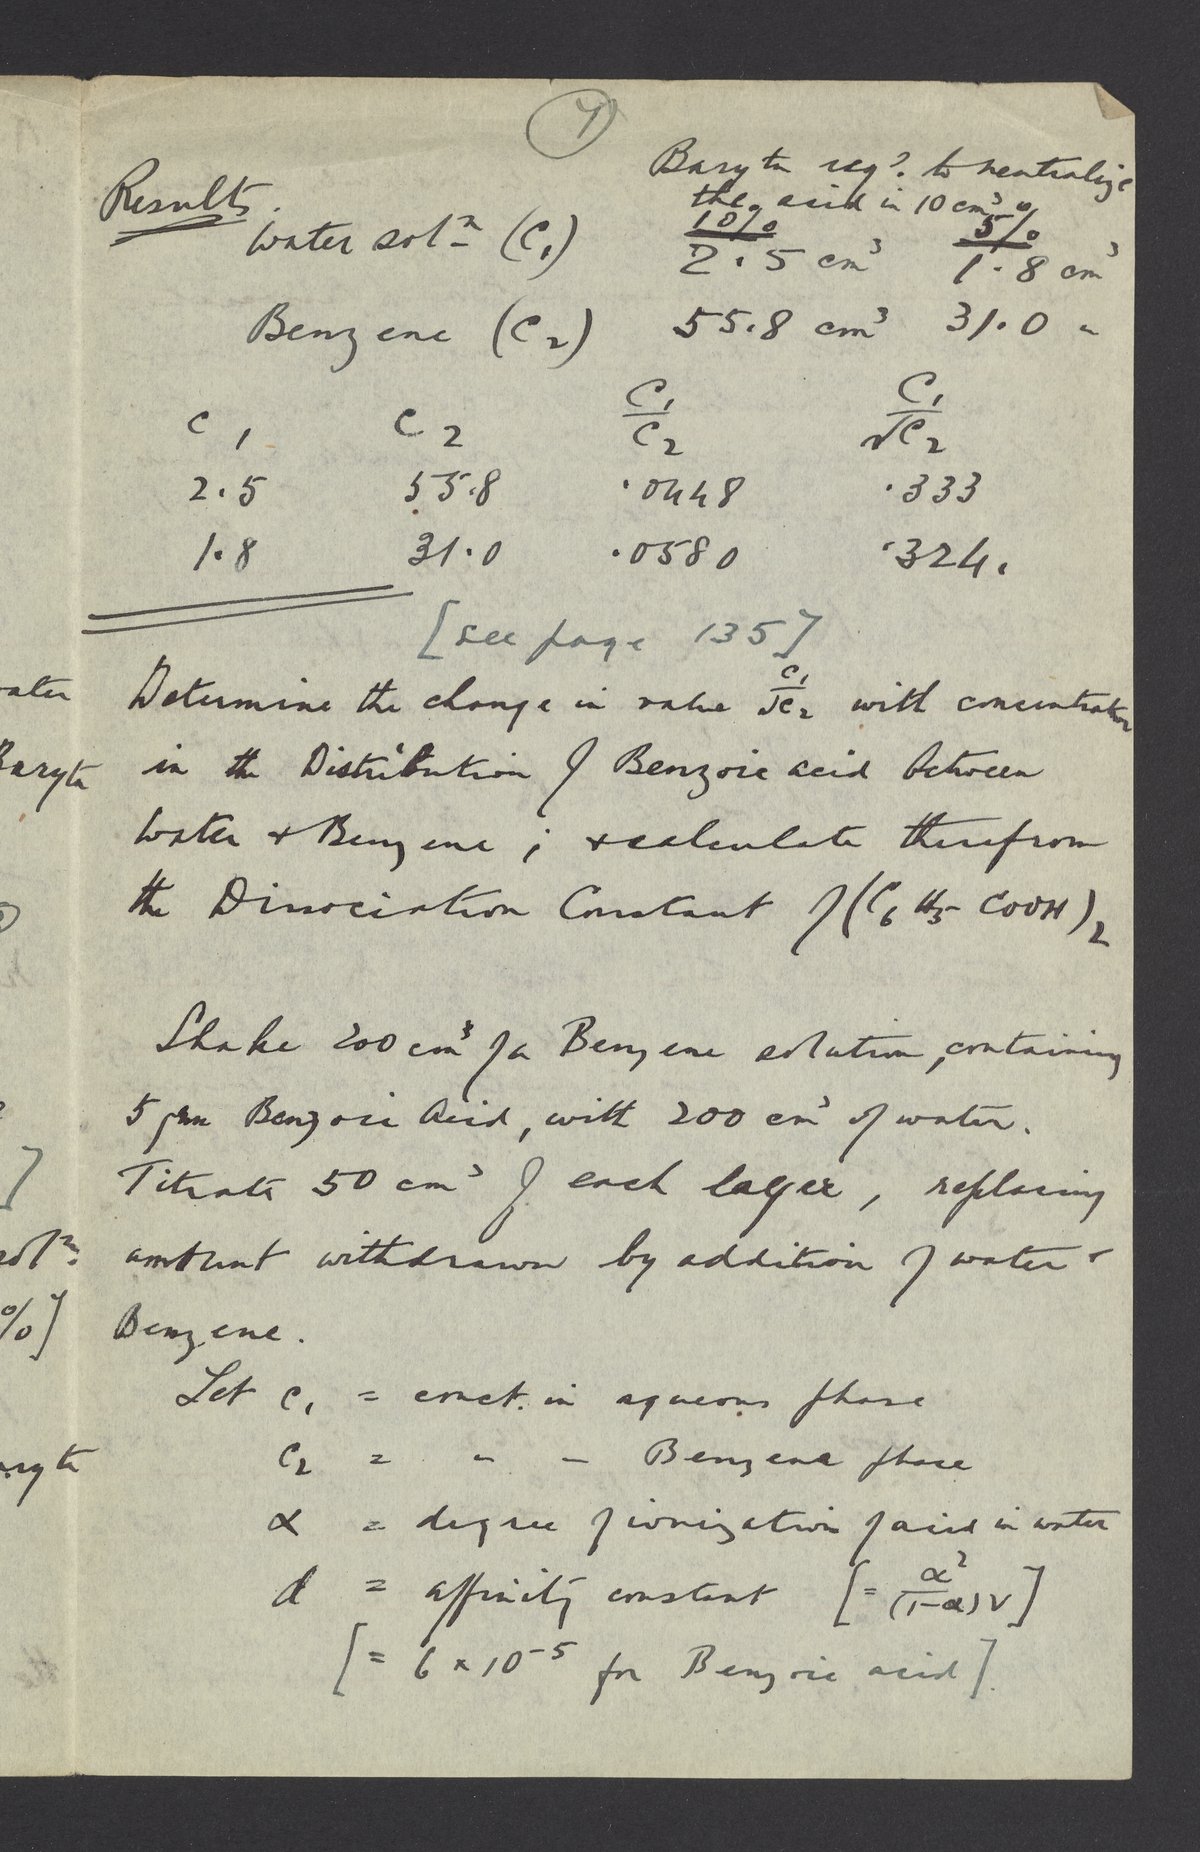 7
Results.
Baryta reqd. to neutralize
the acid in 10 cm³ of
10% 5%
Water solⁿ (C₁) 2.5 cm³ 1.8 cm³
Benzene (C₂) 55.8 cm³ 31.0 "
C₁ C₂ C₁/C₂ C₁/√C₂
2.5 55.8 .0448 .333
1.8 31.0 .0580 .324.
[see page 135]
Determine the change in value C₁/√C₂ with concentration
in the Distribution of Benzoic acid between
Water & Benzene ; & calculate therefrom
the Dissociation Constant of (C₆H₅COOH)₂
Shake 200 cm³ of a Benzene solution, containing
5 grm Benzoic Acid, with 200 cm³ of water.
Titrate 50 cm³ of each layer, replacing
amount withdrawn by addition of water &
Benzene.
Let C₁ = conct. in aqueous phase
C₂ = " " Benzene phase
α = degree of ionization of acid in water
d = affinity constant [= α²/(1-α)V]
[= 6 × 10⁻⁵ for Benzoic acid].
water
Baryta
]
solⁿ.
%]